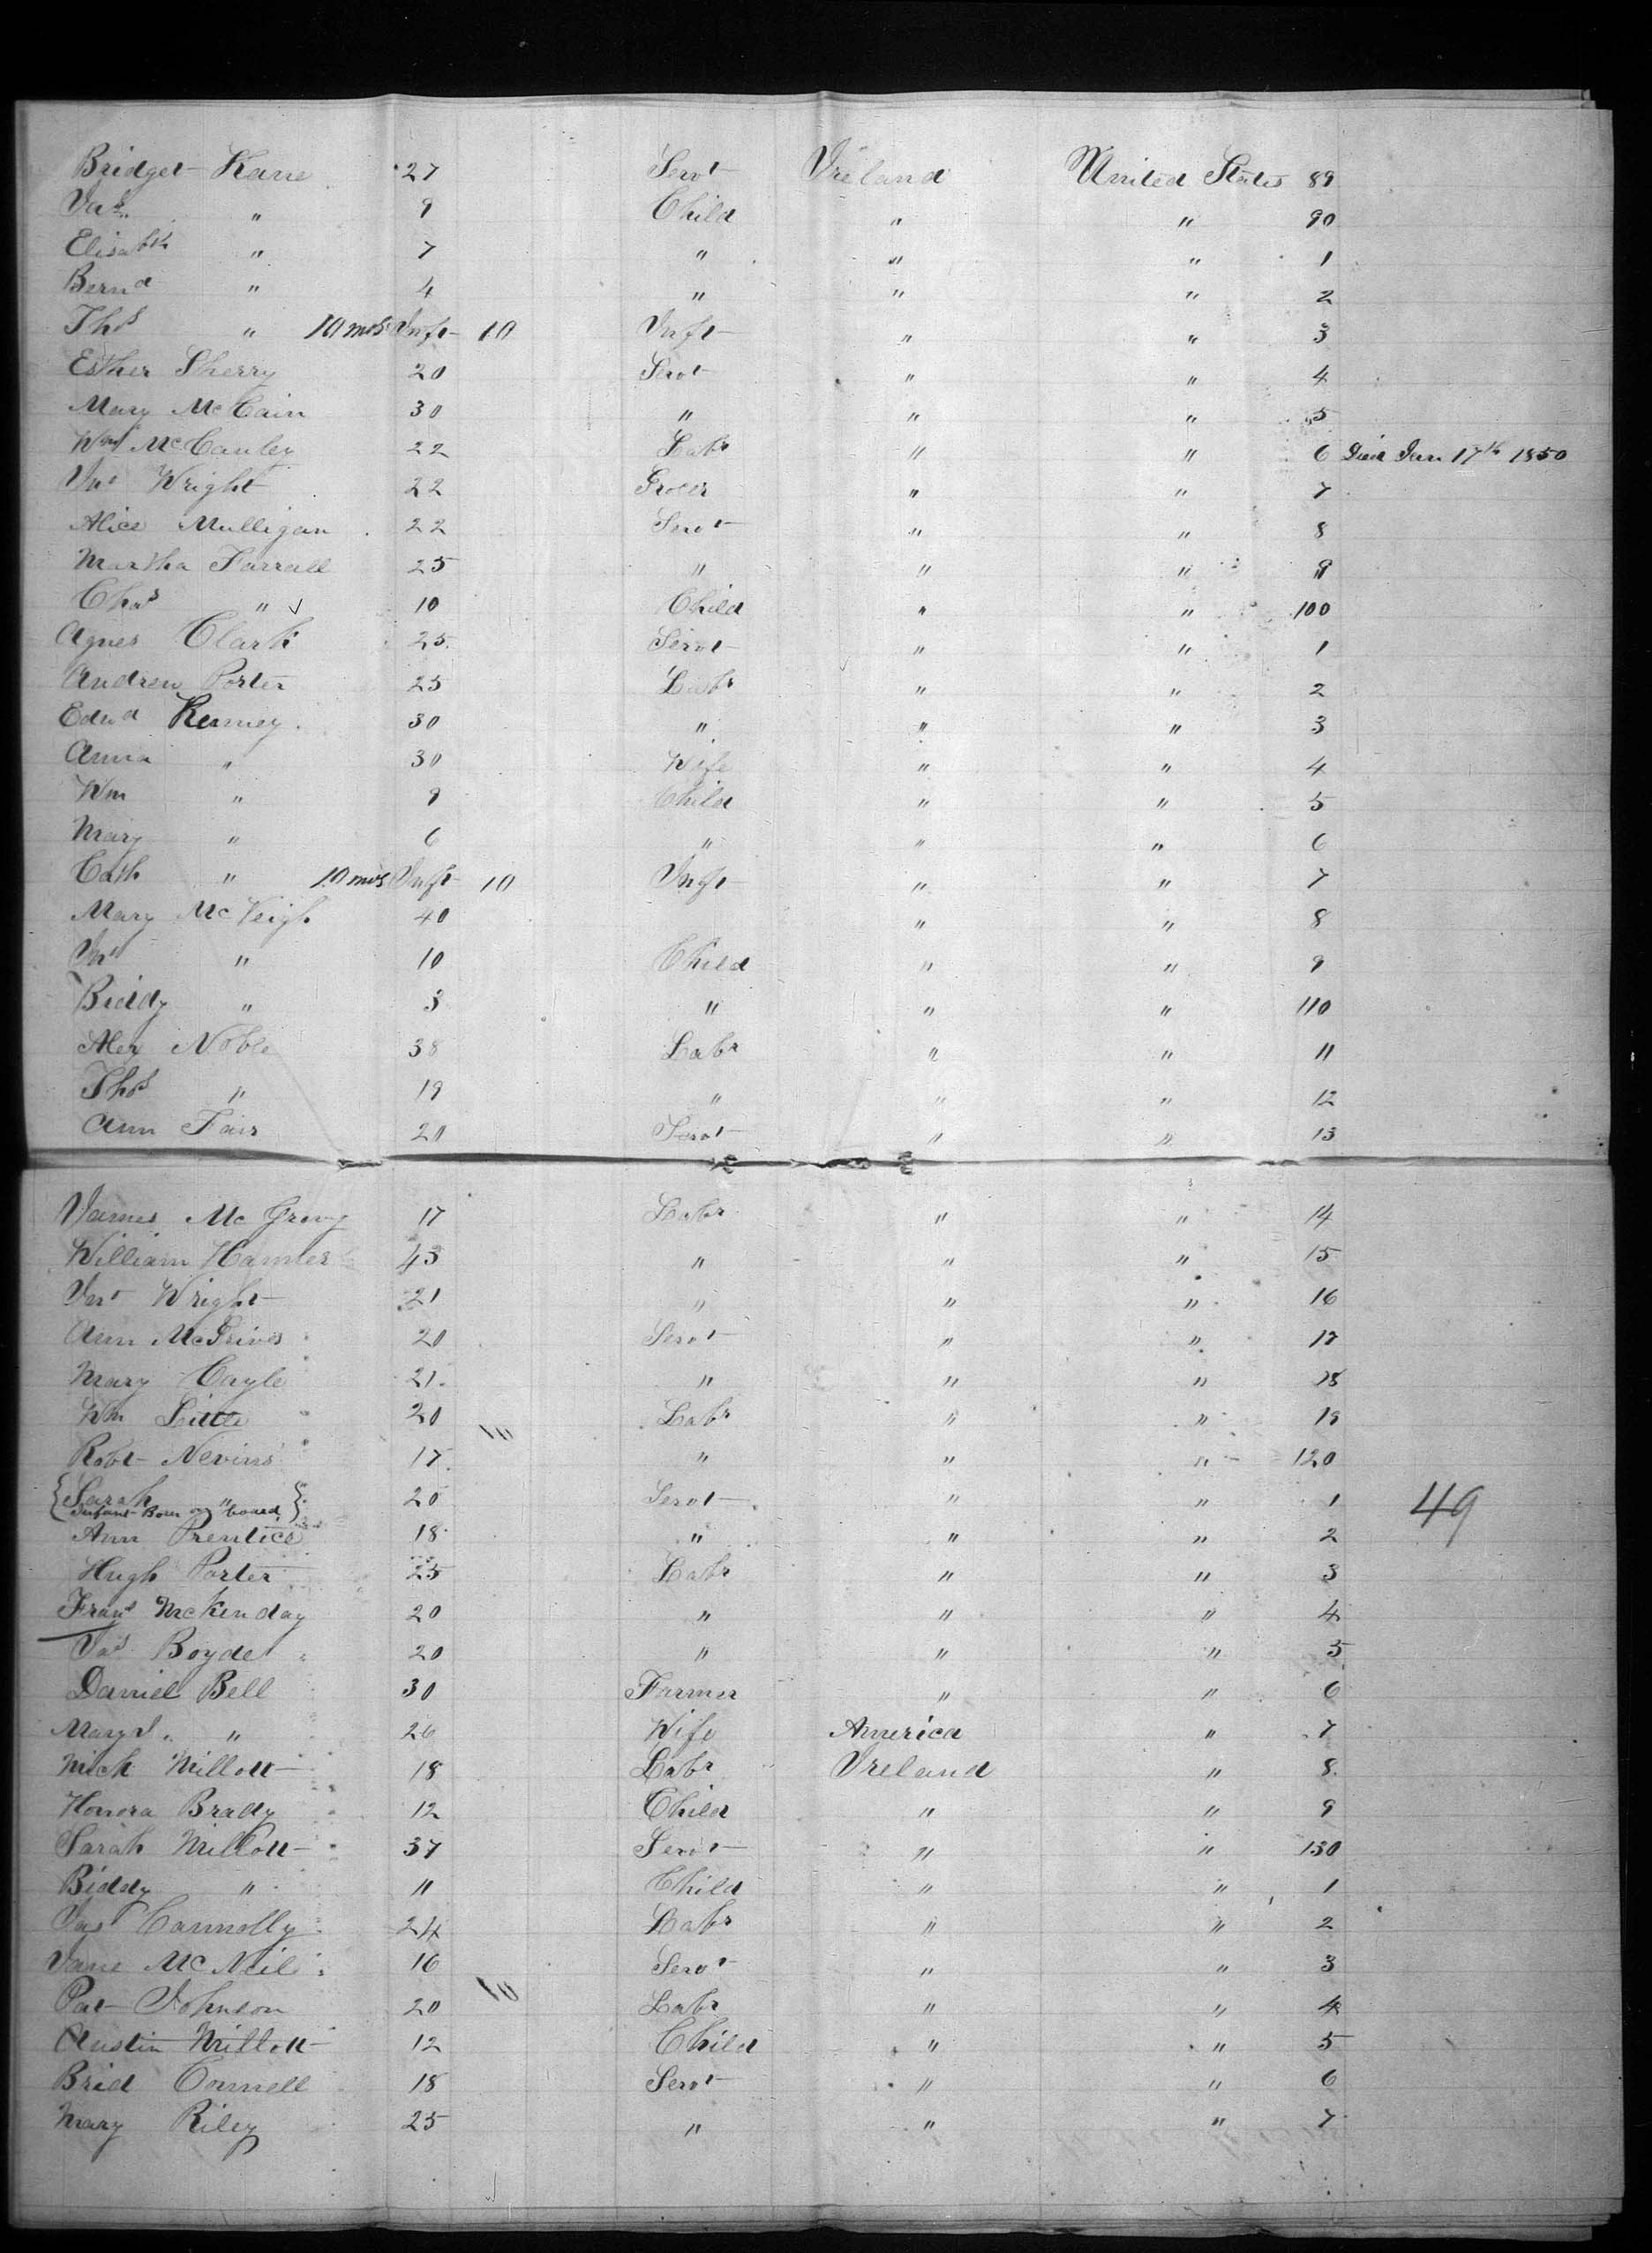 Bridget Kane 27 Servt Ireland United States 89
Jas. " 9 Child " " 90
Elisabth " 7 " " " 1
Bernd " 4 " " " 2
Thos " 10 mos Inft 10 Inft " " 3
Esther Sherry 20 Servt " " 4
Mary McCain 30 " " " 5
Wm McCauley 22 Labr " " 6 Died Jan 17th 1850
Jno Wright 22 Grocer " " 7
Alice Mulligan 22 Servt " " 8
Martha Farrall 25 " " " 9
Chas " 10 Child " " 100
Agnes Clark 25 Servt " " 1
Andrew Porter 25 Labr " " 2
Edwd Kerney 30 " " " 3
Anna " 30 Wife " " 4
Wm " 9 Child " " 5
Mary " 6 " " " 6
Cath " 10 mos Inft 10 Inft " " 7
Mary McVeigh 40 " " 8
Jno " 10 Child " " 9
Biddy " 3 " " " 110
Alex Noble 38 Labr " " 11
Thos " 19 " " " 12
Ann Fair 20 Servt " " 13
James Mc 17 Labr " " 14
William 45 " " " 15
Jno Wright 21 " " " 16
Ann 20 Servt " " 17
Mary Cayle 21 " " " 18
Wm Little 20 Labr " " 19
Robt Nevins 17 " " " 120
{Sarah " } 20 Servt " " 1 49
Infant Born on board
Ann Prentice 18 " " " 2
Hugh Porter 25 Labr " " 3
Frans McKenday 20 " " " 4
Jas Boyde 20 " " " 5
Daniel Bell 30 Farmer " " 6
Mary " 26 Wife America " 7
Mich Millott 18 Labr Ireland " 8
Honora Brady 12 Child " " 9
Sarah Millott 37 Servt " " 130
Biddy " 11 Child " " 1
Jas Connolly 24 Labr " " 2
Jane McNeil 16 Servt " " 3
Pat Johnson 20 10 Labr " " 4
Austin Millott 12 Child " " 5
Brid Connell 18 Servt " " 6
Mary Riley 25 " " " 7